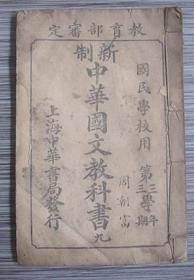 教育部審定
新制
中華國文教科書九
國民學校用
第三學年
第三期
周朝富
上海中華書局發行